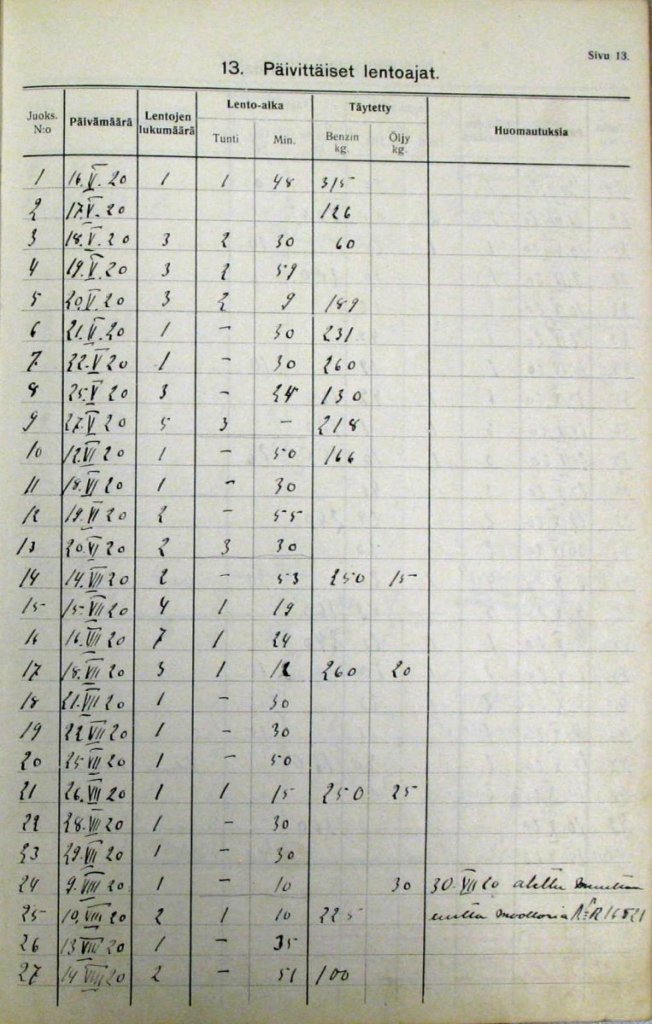 Sivu 13.
13. Päivittäiset lentoajat.
Juoks. N:o Päivämäärä Lentojen lukumäärä Lento-aika Tunti Min. Täytetty Benzin kg. Öljy kg. Huomautuksia
1 16.V.20 1 1 48 315
2 17.V.20 126
3 18.V.20 3 2 30 60
4 19.V.20 3 2 59
5 20.V.20 3 2 9 189
6 21.V.20 1 - 30 231
7 22.V.20 1 - 30 260
8 25.V.20 3 - 24 130
9 27.V.20 5 3 - 218
10 12.VI.20 1 - 50 166
11 18.VI.20 1 - 30
12 19.VI.20 2 - 55
13 20.VI.20 2 3 30
14 14.VII.20 2 - 53 250 15
15 15.VII.20 4 1 19
16 16.VII.20 7 1 24
17 18.VII.20 3 1 12 260 20
18 21.VII.20 1 - 30
19 22.VII.20 1 - 30
20 25.VII.20 1 - 50
21 26.VII.20 1 1 15 250 25
22 28.VII.20 1 - 30
23 29.VII.20 1 - 30
24 9.VIII.20 1 - 10 30 30.VII.20
25 10.VIII.20 2 1 10 225 moottoria
26 13.VIII.20 1 - 35
27 14.VIII.20 2 - 51 100